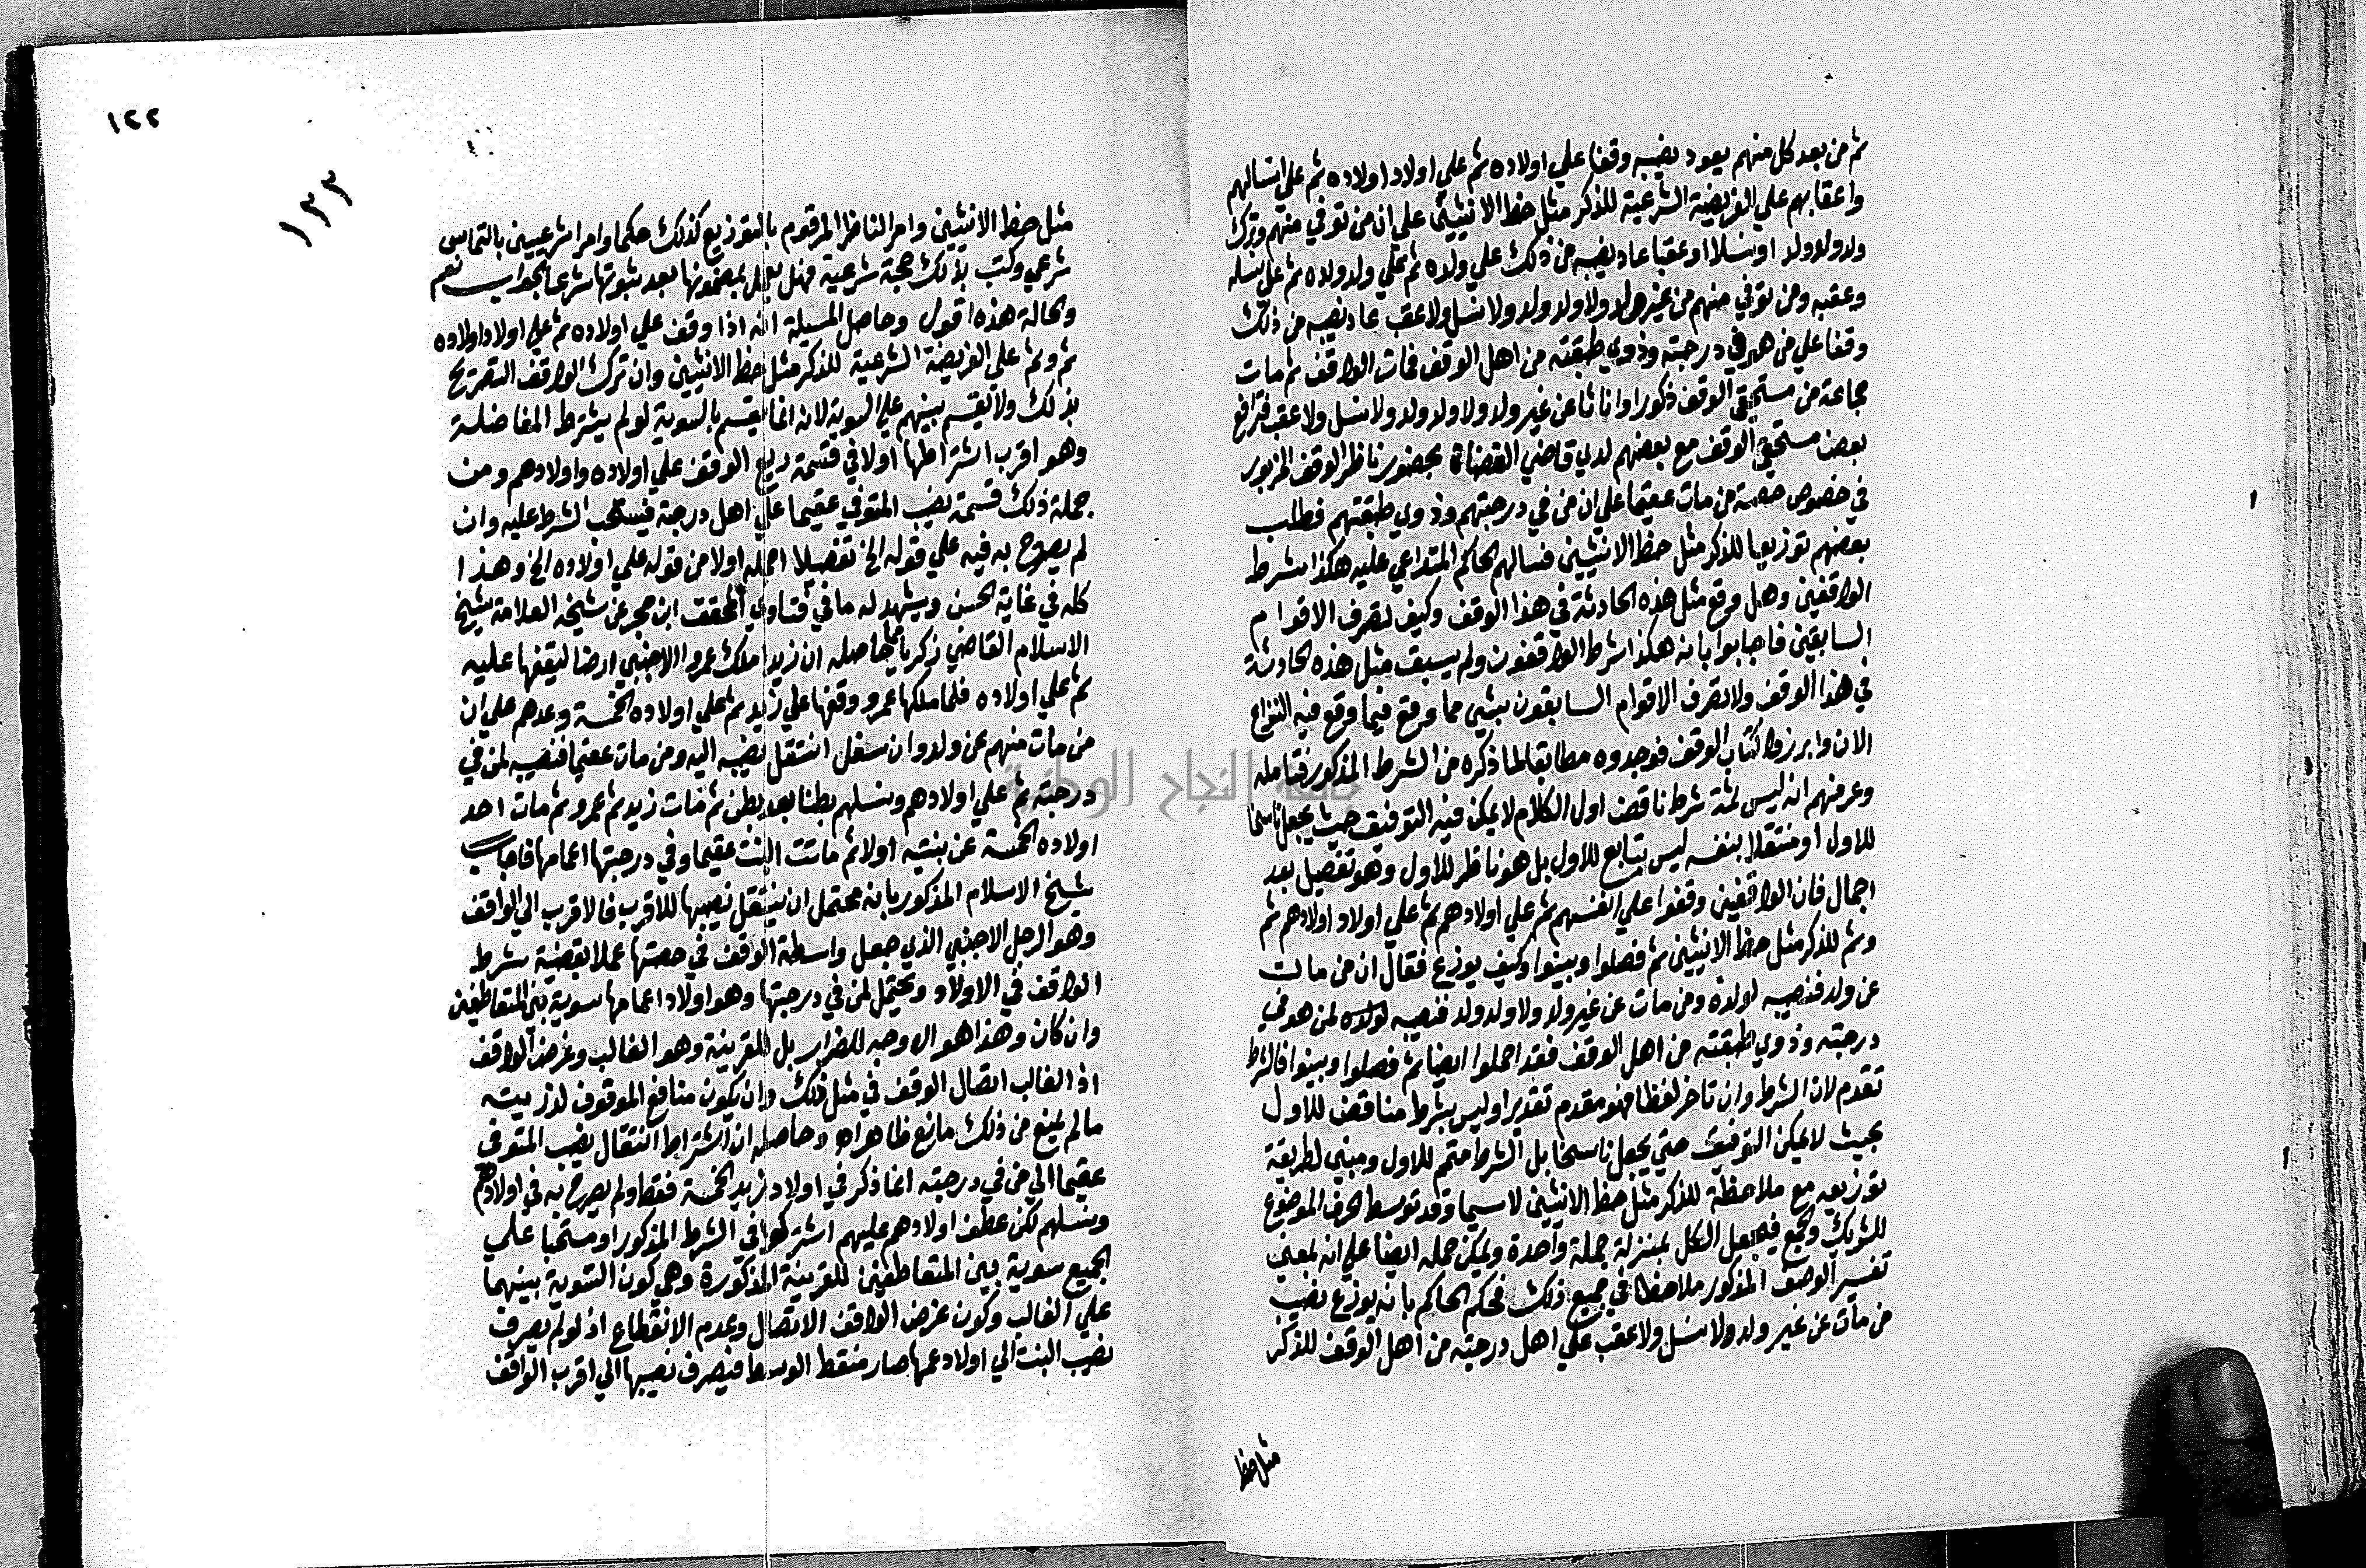 ثم من بعد كل منهم يعود نصيبه وقفا علي اولاده ثم علي اولاد اولاده ثم علي انسالهم
واعقابهم علي الفريضة الشرعية للذكر مثل حظ الانثيين علي ان من توفي منهم وترك
ولدا ولد ولد او نسلا او عقبا عاد نصيبه من ذلك علي ولده ثم علي ولد ولده ثم علي نسله
وعقبه ومن توفي منهم من غير ولد ولا ولد ولد ولا نسل ولا عقب عاد نصيبه من ذلك
وقفا علي من هو في درجته وذوي طبقته من اهل الوقف فمات الواقف ثم مات
جماعة من مستحقي الوقف ذكورا واناثا عن غير ولد ولا ولد ولد ولا نسل ولا عقب فترافع
بعض مستحقي الوقف مع بعضهم لدي قاضي القضاة بحضور ناظر الوقف المزبور
في خصوص حصة من مات عقيما علي ان من في درجتهم وذوي طبقتهم فطلب
بعضهم توزيعها للذكر مثل حظ الانثيين فسالهم الحاكم المتداعي عليه هكذا شرط
الواقفين وهل وقع مثل هذه الحادثة في هذا الوقف وكيف تصرف الاقوام
السابقين فاجابوا بانه هكذا شرط الواقفون ولم يسبق مثل هذه الحادثة
في هذا الوقف ولا تصرف الاقوام السابقون بشي مما وقع فيما وقع فيه النزاع
الان وابرزوا كتاب الوقف فوجدوه مطابقا لما ذكره من الشرط المذكور فتامله
وعرفهم انه ليس ثمة شرط ناقض اول الكلام لا يمكن فيه التوفيق حيث يجعل ناسخا
للاول او منتقلا بنفسه ليس بتابع للاول بل هو ناظر للاول وهو تفصيل بعد
اجمال فان الواقفين وقفوا علي انفسهم ثم علي اولادهم ثم علي اولاد اولادهم ثم
وثم للذكر مثل حظ الانثيين ثم فصلوا وبينوا وكيف يوزع فقال ان من مات
عن ولد فنصيبه لولده ومن مات عن غير ولد ولا ولد ولد فنصيبه لمن هو في
درجته وذوي طبقته من اهل الوقف فقد اجملوا ايضا ثم فصلوا وبينوا فالشرط
تقدم لان الشرط وان تاخر لفظا فهو مقدم تقديرا وليس بشرط مناقض للاول
بحيث لا يمكن التوفيق حتي يجعل ناسخا بل الشرط متمم للاول ومبني لطريقة
توزيعه مع ملاحظة للذكر مثل حظ الانثيين لاسيما وقد توسط بحرف الموضوع
للشريك والجمع فيجعل الكل بمنزلة جملة واحدة ويمكن حمله ايضا علي انه بمعني
تفسير الوصف المذكور ملاحظا في جميع ذلك فحكم الحاكم بانه يوزع نصيب
من مات عن غير ولد ولا نسل ولا عقب علي اهل درجته من اهل الوقف للذكر
مثل حظ
١٢٢
١٣٣
مثل حظ الانثيين وامر الناظر المرقوم بالتوزيع كذلك حكما وامرا شرعيين بالتماس
شرعي وكتب بذلك حجة شرعية فهل يعمل بمضمونها بعد ثبوتها شرعا الجواب نعم
والحالة هذه اقول وحاصل المسيلة انه اذا وقف علي اولاده ثم علي اولاد اولاده
ثم وثم علي الفريضة الشرعية للذكر مثل حظ الانثيين وان ترك الواقف التصريح
بذلك ولا يقسم بينهم علي السوية لانه انما يقسم بالسوية لو لم يشترط المفاضلة
وهو اقرب اشتراطها اولا في قسمة ريع الوقف علي اولاده واولادهم ومن
جملة ذلك قسمة نصيب المتوفي عقيما علي اهل درجة فينسحب الشرط عليه وان
لم يصرح به فيه علي قوله الخ تفصيلا اجمله اولا من قوله علي اولاده الخ وهذا
كله في غاية الحسن ويشهد له ما في فتاوي المحقق ابن حجر عن شيخه العلامة شيخ
الاسلام القاضي زكريا حاصله ان زيدا ملك عمروا الاجنبي ارضا ليقفها عليه
ثم علي اولاده فلما ملكها عمرو وقفها علي زيد ثم علي اولاده الخمسة وعدهم علي ان
من مات منهم عن ولد وان سفل انتقل نصيبه اليه ومن مات عقيما فنصيبه لمن في
درجته ثم علي اولادهم ونسلهم بطنا بعد بطن ثم مات زيد ثم عمرو ثم مات احد
اولاده الخمسة عن بنته اولا ثم ماتت البنت عقيما وفي درجتها اعمامها فاجاب
شيخ الاسلام المذكور بانه محتمل ان ينتقل نصيبها للاقرب فالاقرب الي الواقف
وهو الرجل الاجنبي الذي جعل واسطة الوقف في حصتها عملا بقضية شرط
الواقف في الاولاد ويحتمل لمن في درجتها وهو اولاد اعمامها سوية بين المتعاطفين
وان كان وهذا هو الاوجه للضرار بل للقرينة وهو الغالب وغرض الواقف
اذ الغالب اتصال الوقف في مثل ذلك وان يكون منافع الموقوف لذريته
ما لم يمنع من ذلك مانع ظاهرا وحاصله ان اشتراط انتقال نصيب المتوفي
عقيما الي من في درجته انما ذكر في اولاد زيد الخمسة فقط ولم يصرح به في اولادهم
ونسلهم لكن عطف اولادهم عليهم اشتركوا في الشرط المذكور او منسحبا علي
الجميع سوية بين المتعاطفين للقرينة المذكورة وهي كون التسوية بينهما
علي الغالب وكون غرض الواقف الاتصال وعدم الانقطاع اذ لو لم يصرف
نصيب البنت الي اولاد عمها صار منقطع الوسط فيصرف نصيبها الي اقرب الواقف
جامعة النجاح الوطنية